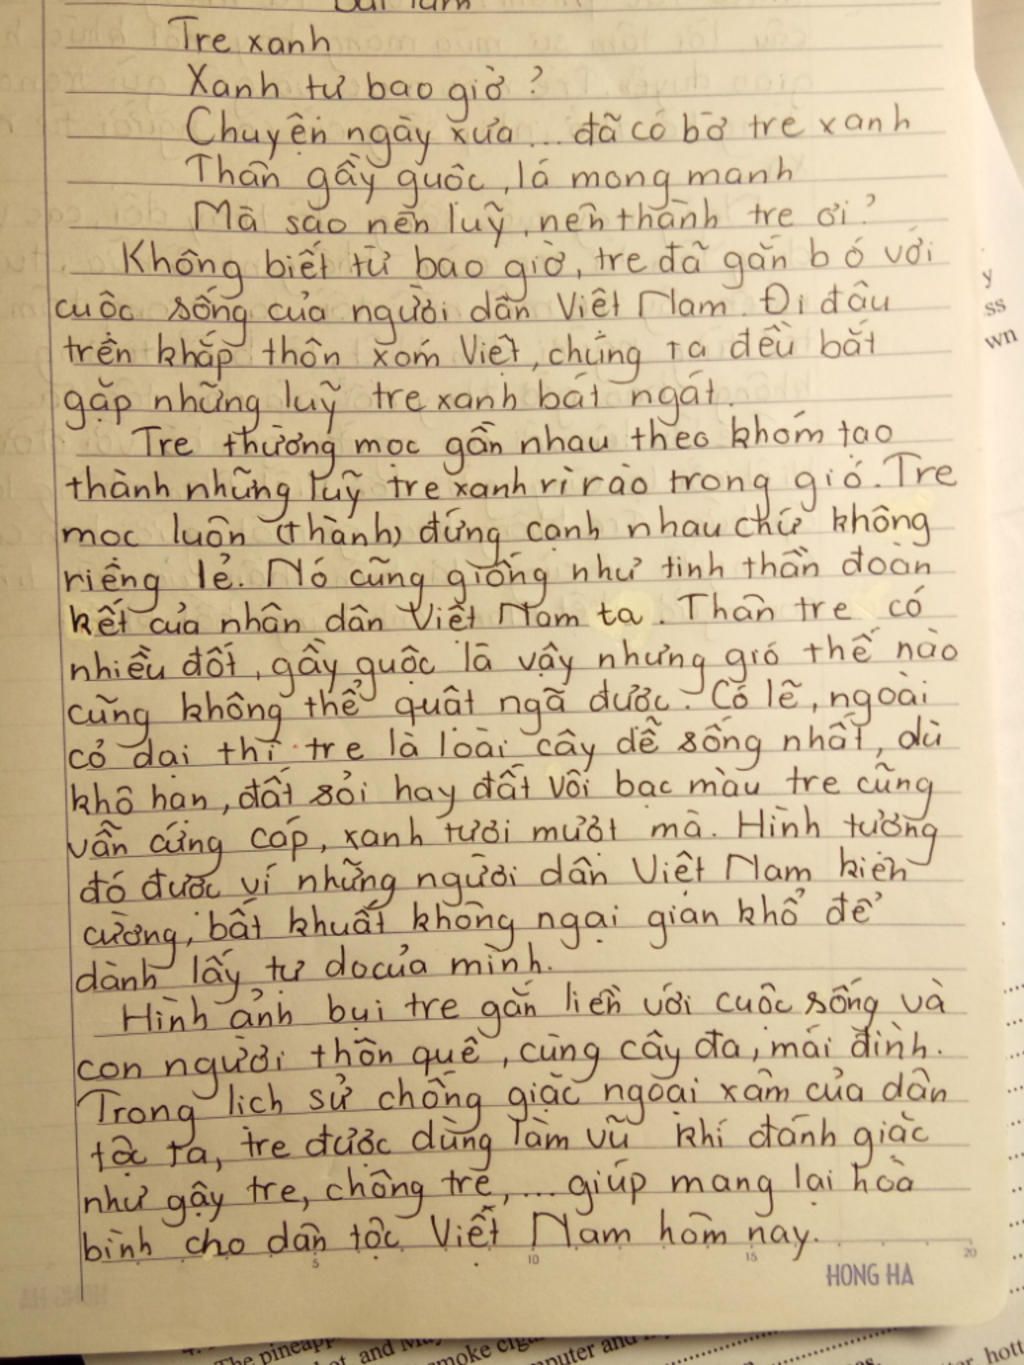 Bài làm
Tre xanh
Xanh tự bao giờ ?
Chuyện ngày xưa ... đã có bờ tre xanh
Thân gầy guộc, lá mong manh
Mà sao nên luỹ, nên thành tre ơi ?
Không biết từ bao giờ, tre đã gắn bó với
cuộc sống của người dân Việt Nam. Đi đâu
trên khắp thôn xóm Việt, chúng ta đều bắt
gặp những luỹ tre xanh bát ngát.
Tre thường mọc gần nhau theo khóm tạo
thành những luỹ tre xanh rì rào trong gió. Tre
mọc luôn (thành) đứng cạnh nhau chứ không
riêng lẻ. Nó cũng giống như tinh thần đoàn
kết của nhân dân Việt Nam ta. Thân tre có
nhiều đốt, gầy guộc là vậy nhưng gió thế nào
cũng không thể quật ngã được. Có lẽ, ngoài
cỏ dại thì tre là loài cây dễ sống nhất, dù
khô hạn, đất sỏi hay đất vôi bạc màu tre cũng
vẫn cứng cáp, xanh tươi mượt mà. Hình tượng
đó được ví những người dân Việt Nam kiên
cường, bất khuất không ngại gian khổ để
dành lấy tự do của mình.
Hình ảnh bụi tre gắn liền với cuộc sống và
con người thôn quê, cùng cây đa, mái đình.
Trong lịch sử chống giặc ngoại xâm của dân
tộc ta, tre được dùng làm vũ khí đánh giặc
như gậy tre, chông tre, ... giúp mang lại hoà
bình cho dân tộc Việt Nam hôm nay.
5 10 15 20
HONG HA
y
ss
wn
The
and
moke
puter and
hott